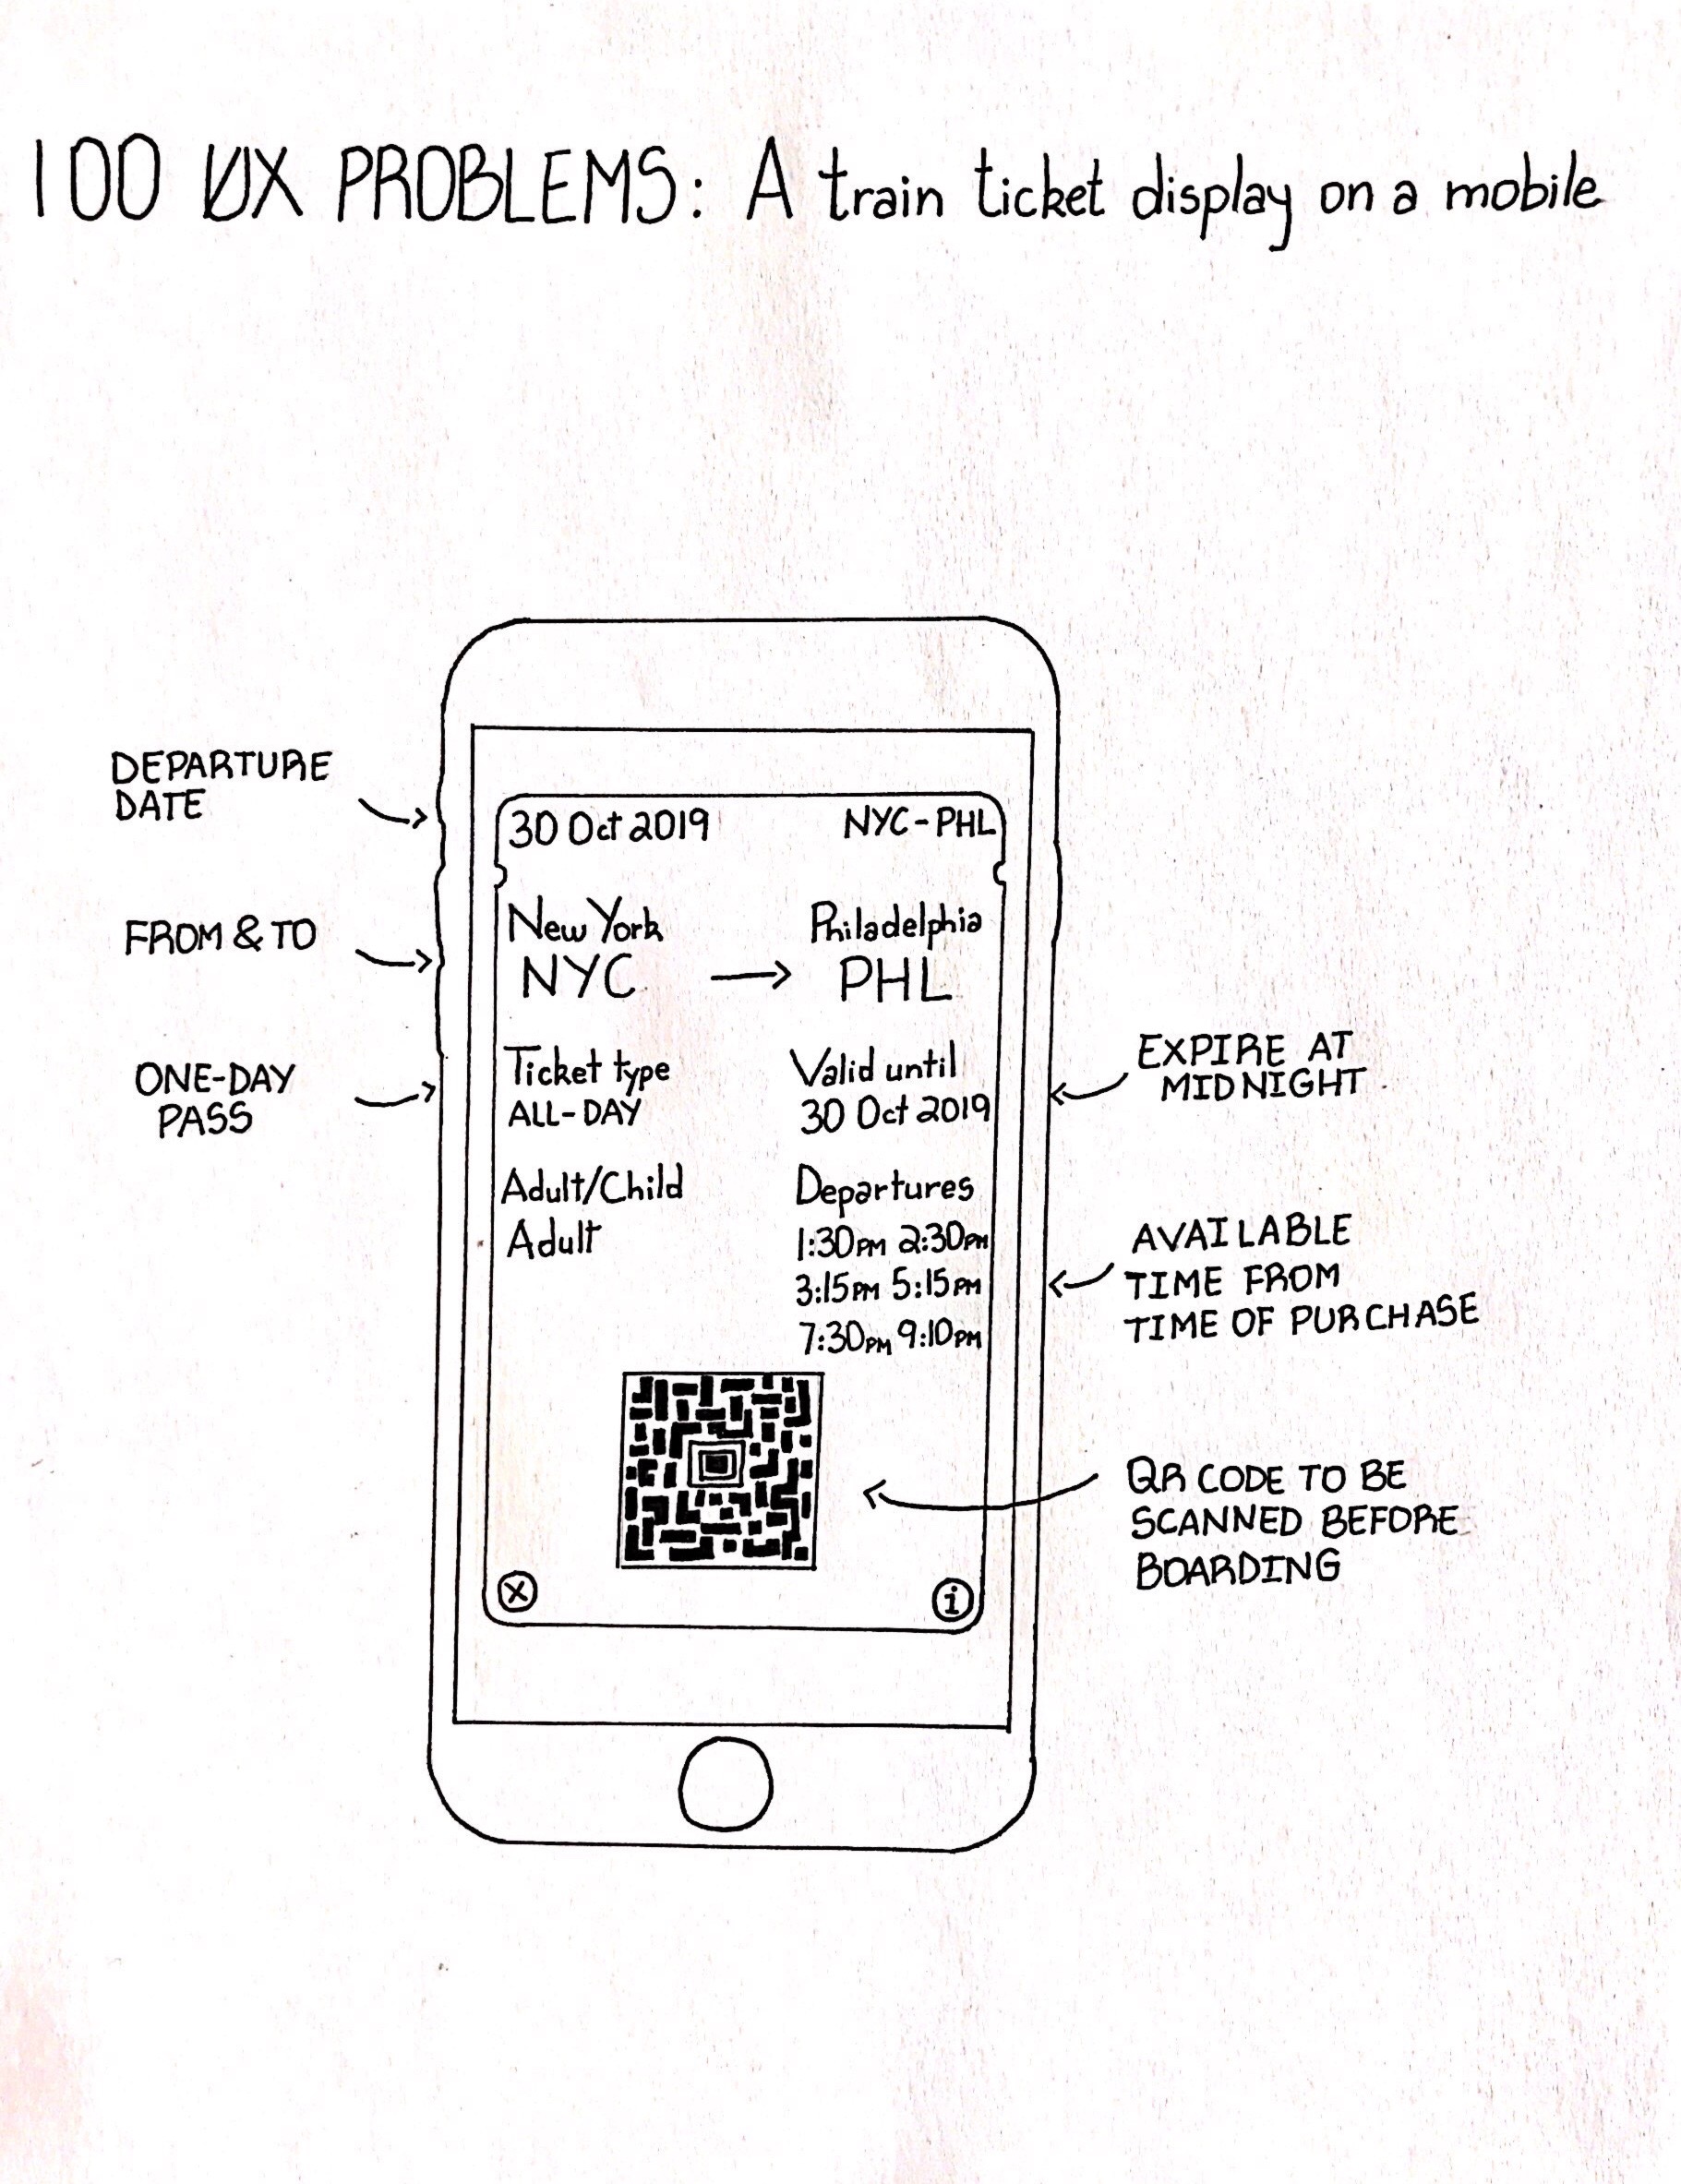 100 UX PROBLEMS: A train ticket display on a mobile
DEPARTURE
DATE
FROM & TO
ONE-DAY
PASS
30 Oct 2019 NYC-PHL
New York Philadelphia
NYC → PHL
Ticket type Valid until
ALL-DAY 30 Oct 2019
Adult/Child Departures
Adult 1:30PM 2:30PM
3:15PM 5:15PM
7:30PM 9:10PM
X i
EXPIRE AT
MIDNIGHT
AVAILABLE
TIME FROM
TIME OF PURCHASE
QR CODE TO BE
SCANNED BEFORE
BOARDING